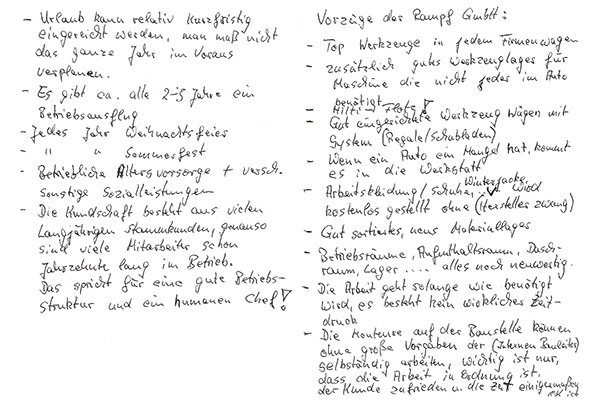 Vorzüge der Rampf GmbH:
- Top Werkzeuge in jedem Firmenwagen
- zusätzlich gutes Werkzeuglager für
Maschine die nicht jeder im Auto
benötigt
- Hilti - Flotte!
- Gut eingerichtete Werkzeug Wägen mit
System (Regale/Schubladen)
- Wenn ein Auto ein Mangel hat, kommt
es in die Werkstatt
- Arbeitskleidung/Schuhe, Winterjacke, wird
kostenlos gestellt ohne (Hersteller zwang)
- Gut sortiertes, neues Materiallager
- Betriebsräume, Aufenthaltsraum, Dusch-
raum, Lager .... alles noch neuwertig.
- Die Arbeit geht solange wie benötigt
wird, es besteht kein wirklicher Zeit-
druck
- Die Monteure auf der Baustelle können
ohne große Vorgaben der (internen Bauleiter)
selbständig arbeiten, wichtig ist nur,
dass die Arbeit in Ordnung ist.
der Kunde zufrieden u. die Zeit einigermaßen
OK ist
- Urlaub kann relativ kurzfristig
eingereicht werden, man muß nicht
das ganze Jahr im Voraus
verplanen.
- Es gibt ca. alle 2-5 Jahre ein
Betriebsausflug
- Jedes Jahr Weihnachtsfeier
- " " Sommerfest
- Betriebliche Altersvorsorge + versch.
sonstige Sozialleistungen
- Die Kundschaft besteht aus vielen
Langjährigen Stammkunden, genauso
sind viele Mitarbeiter schon
Jahrzehnte lang im Betrieb.
Das spricht für eine gute Betriebs-
struktur und ein humanen Chef!